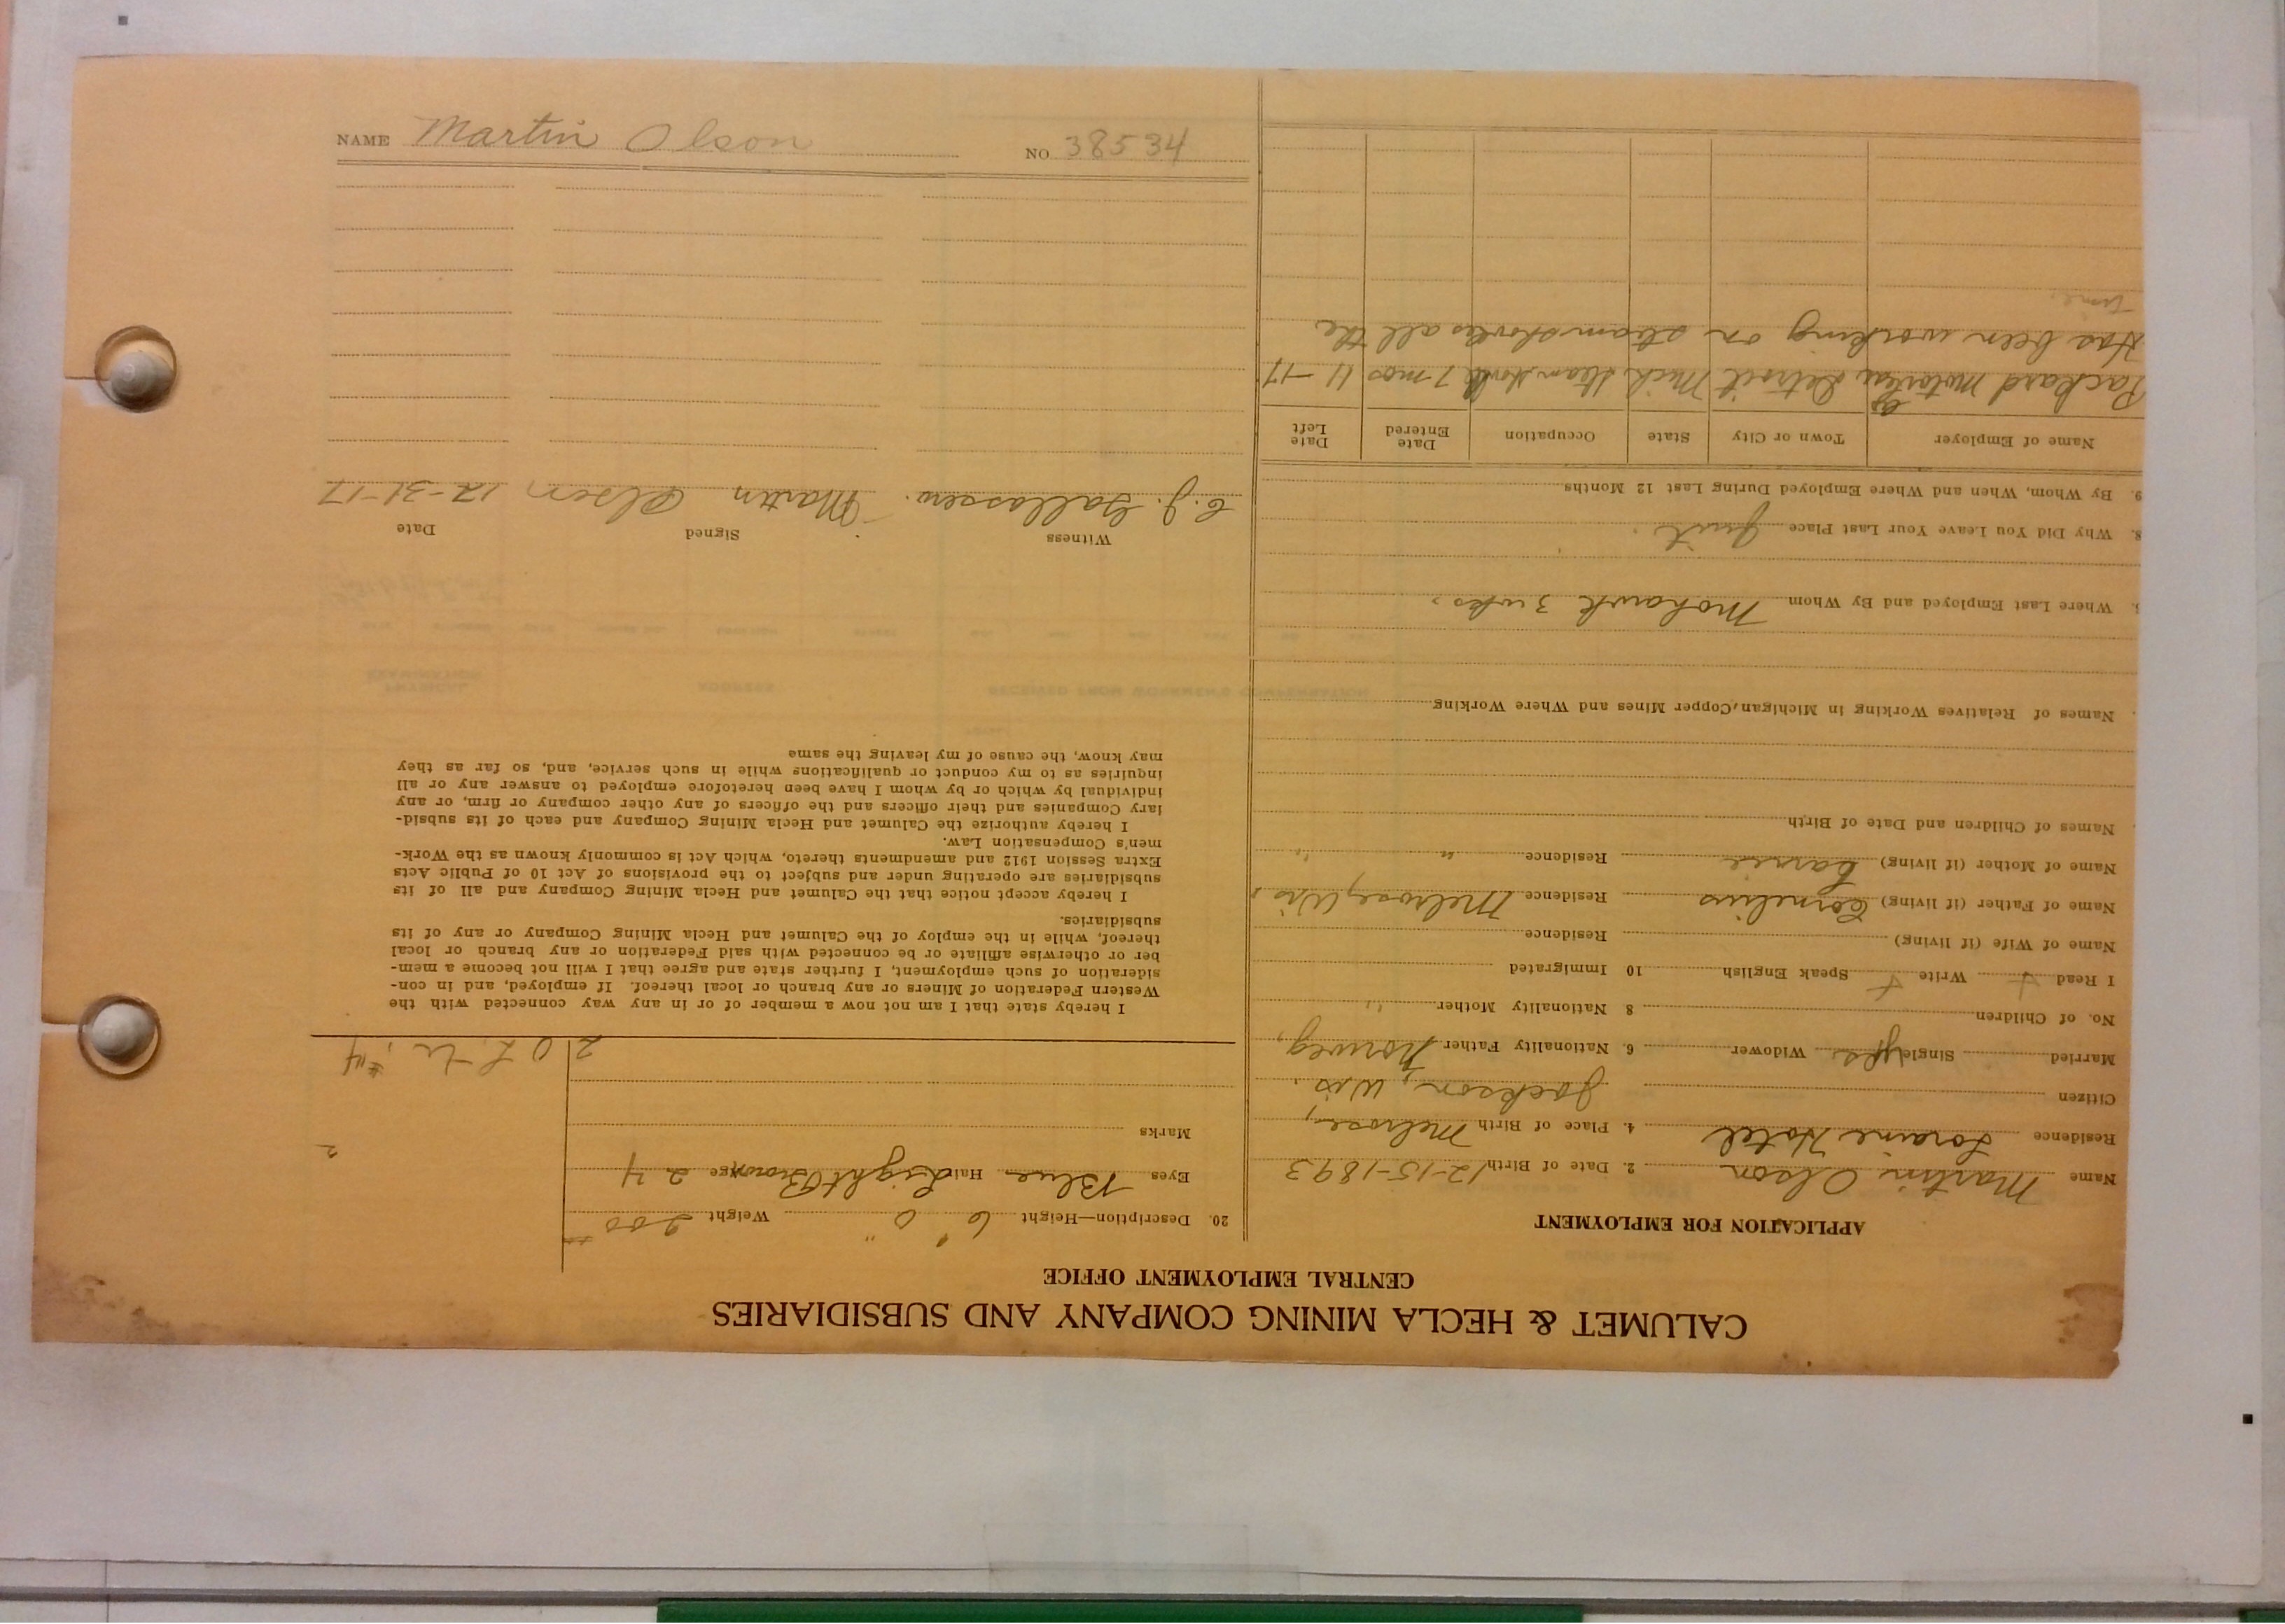 CALUMET & HECLA MINING COMPANY AND SUBSIDIARIES
CENTRAL EMPLOYMENT OFFICE
APPLICATION FOR EMPLOYMENT
Name Martin Olson 2. Date of Birth 12-15-1893
Residence Loraine Hotel 4. Place of Birth Melrose,
Citizen Jackson, Wis.
Married Single yes Widower 6. Nationality Father Norweg,
No. of Children 8 Nationality Mother "
I Read + Write + Speak English 10 Immigrated
Name of Wife (if living) Residence
Name of Father (if living) Cornelius Residence Melrose, Wis,
Name of Mother (if living) Carrie Residence " "
Names of Children and Date of Birth
Names of Relatives Working in Michigan, Copper Mines and Where Working
Where Last Employed and By Whom Mohawk 3 wks.
8. Why Did You Leave Your Last Place Quit.
9. By Whom, When and Where Employed During Last 12 Months
Name of Employer Town or City State Occupation Date Entered Date Left
Packard Motor Co Detroit Mich Steam Shovel 7 mos 11-17
Has been working on steam shovels all the
time.
20. Description—Height 6' 0" Weight 200
Eyes Blue Hair Light Brown Age 24
Marks
2
2 0 #4
I hereby state that I am not now a member of or in any way connected with the
Western Federation of Miners or any branch or local thereof. If employed, and in con-
sideration of such employment, I further state and agree that I will not become a mem-
ber or otherwise affiliate or be connected with said Federation or any branch or local
thereof, while in the employ of the Calumet and Hecla Mining Company or any of its
subsidiaries.
I hereby accept notice that the Calumet and Hecla Mining Company and all of its
subsidiaries are operating under and subject to the provisions of Act 10 of Public Acts
Extra Session 1912 and amendments thereto, which Act is commonly known as the Work-
men's Compensation Law.
I hereby authorize the Calumet and Hecla Mining Company and each of its subsid-
iary Companies and their officers and the officers of any other company or firm, or any
individual by which or by whom I have been heretofore employed to answer any or all
inquiries as to my conduct or qualifications while in such service, and, so far as they
may know, the cause of my leaving the same
Witness Signed Date
Martin Olson 12-31-17
NAME Martin Olson NO. 38534